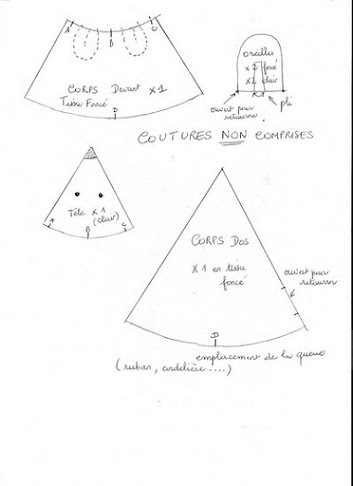 A B C
CORPS Devant x1
Tissu Foncé
D
oreilles
x2 foncé
x2 clair
ouvert pour
retourner
pli
COUTURES NON COMPRISES
Tête x1
(clair)
A B C
CORPS DOS
x1 en tissu
foncé
ouvert pour
retourner
D
emplacement de la queue
(ruban, cordelière ....)